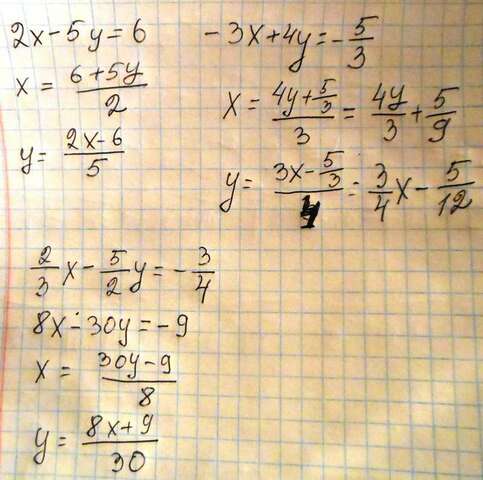 2x-5y=6
x = (6+5y)/2
y = (2x-6)/5
-3x+4y=-5/3
x = (4y+5/3)/3 = 4y/3 + 5/9
y = (3x-5/3)/4 = 3/4 x - 5/12
2/3 x - 5/2 y = -3/4
8x-30y=-9
x = (30y-9)/8
y = (8x+9)/30